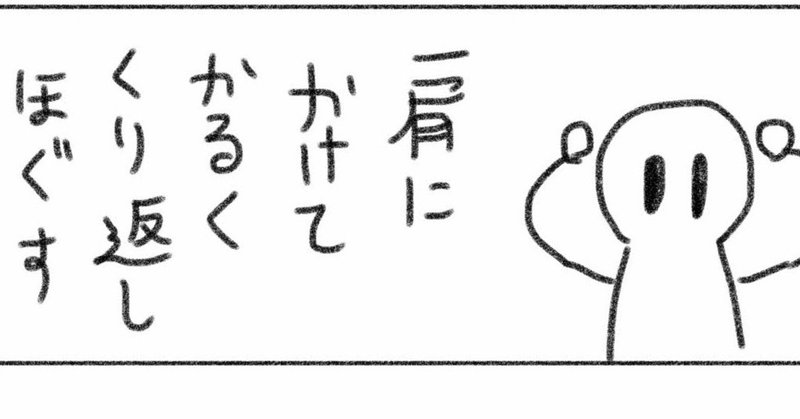 肩に
かけて
かるく
くり返し
ほぐす